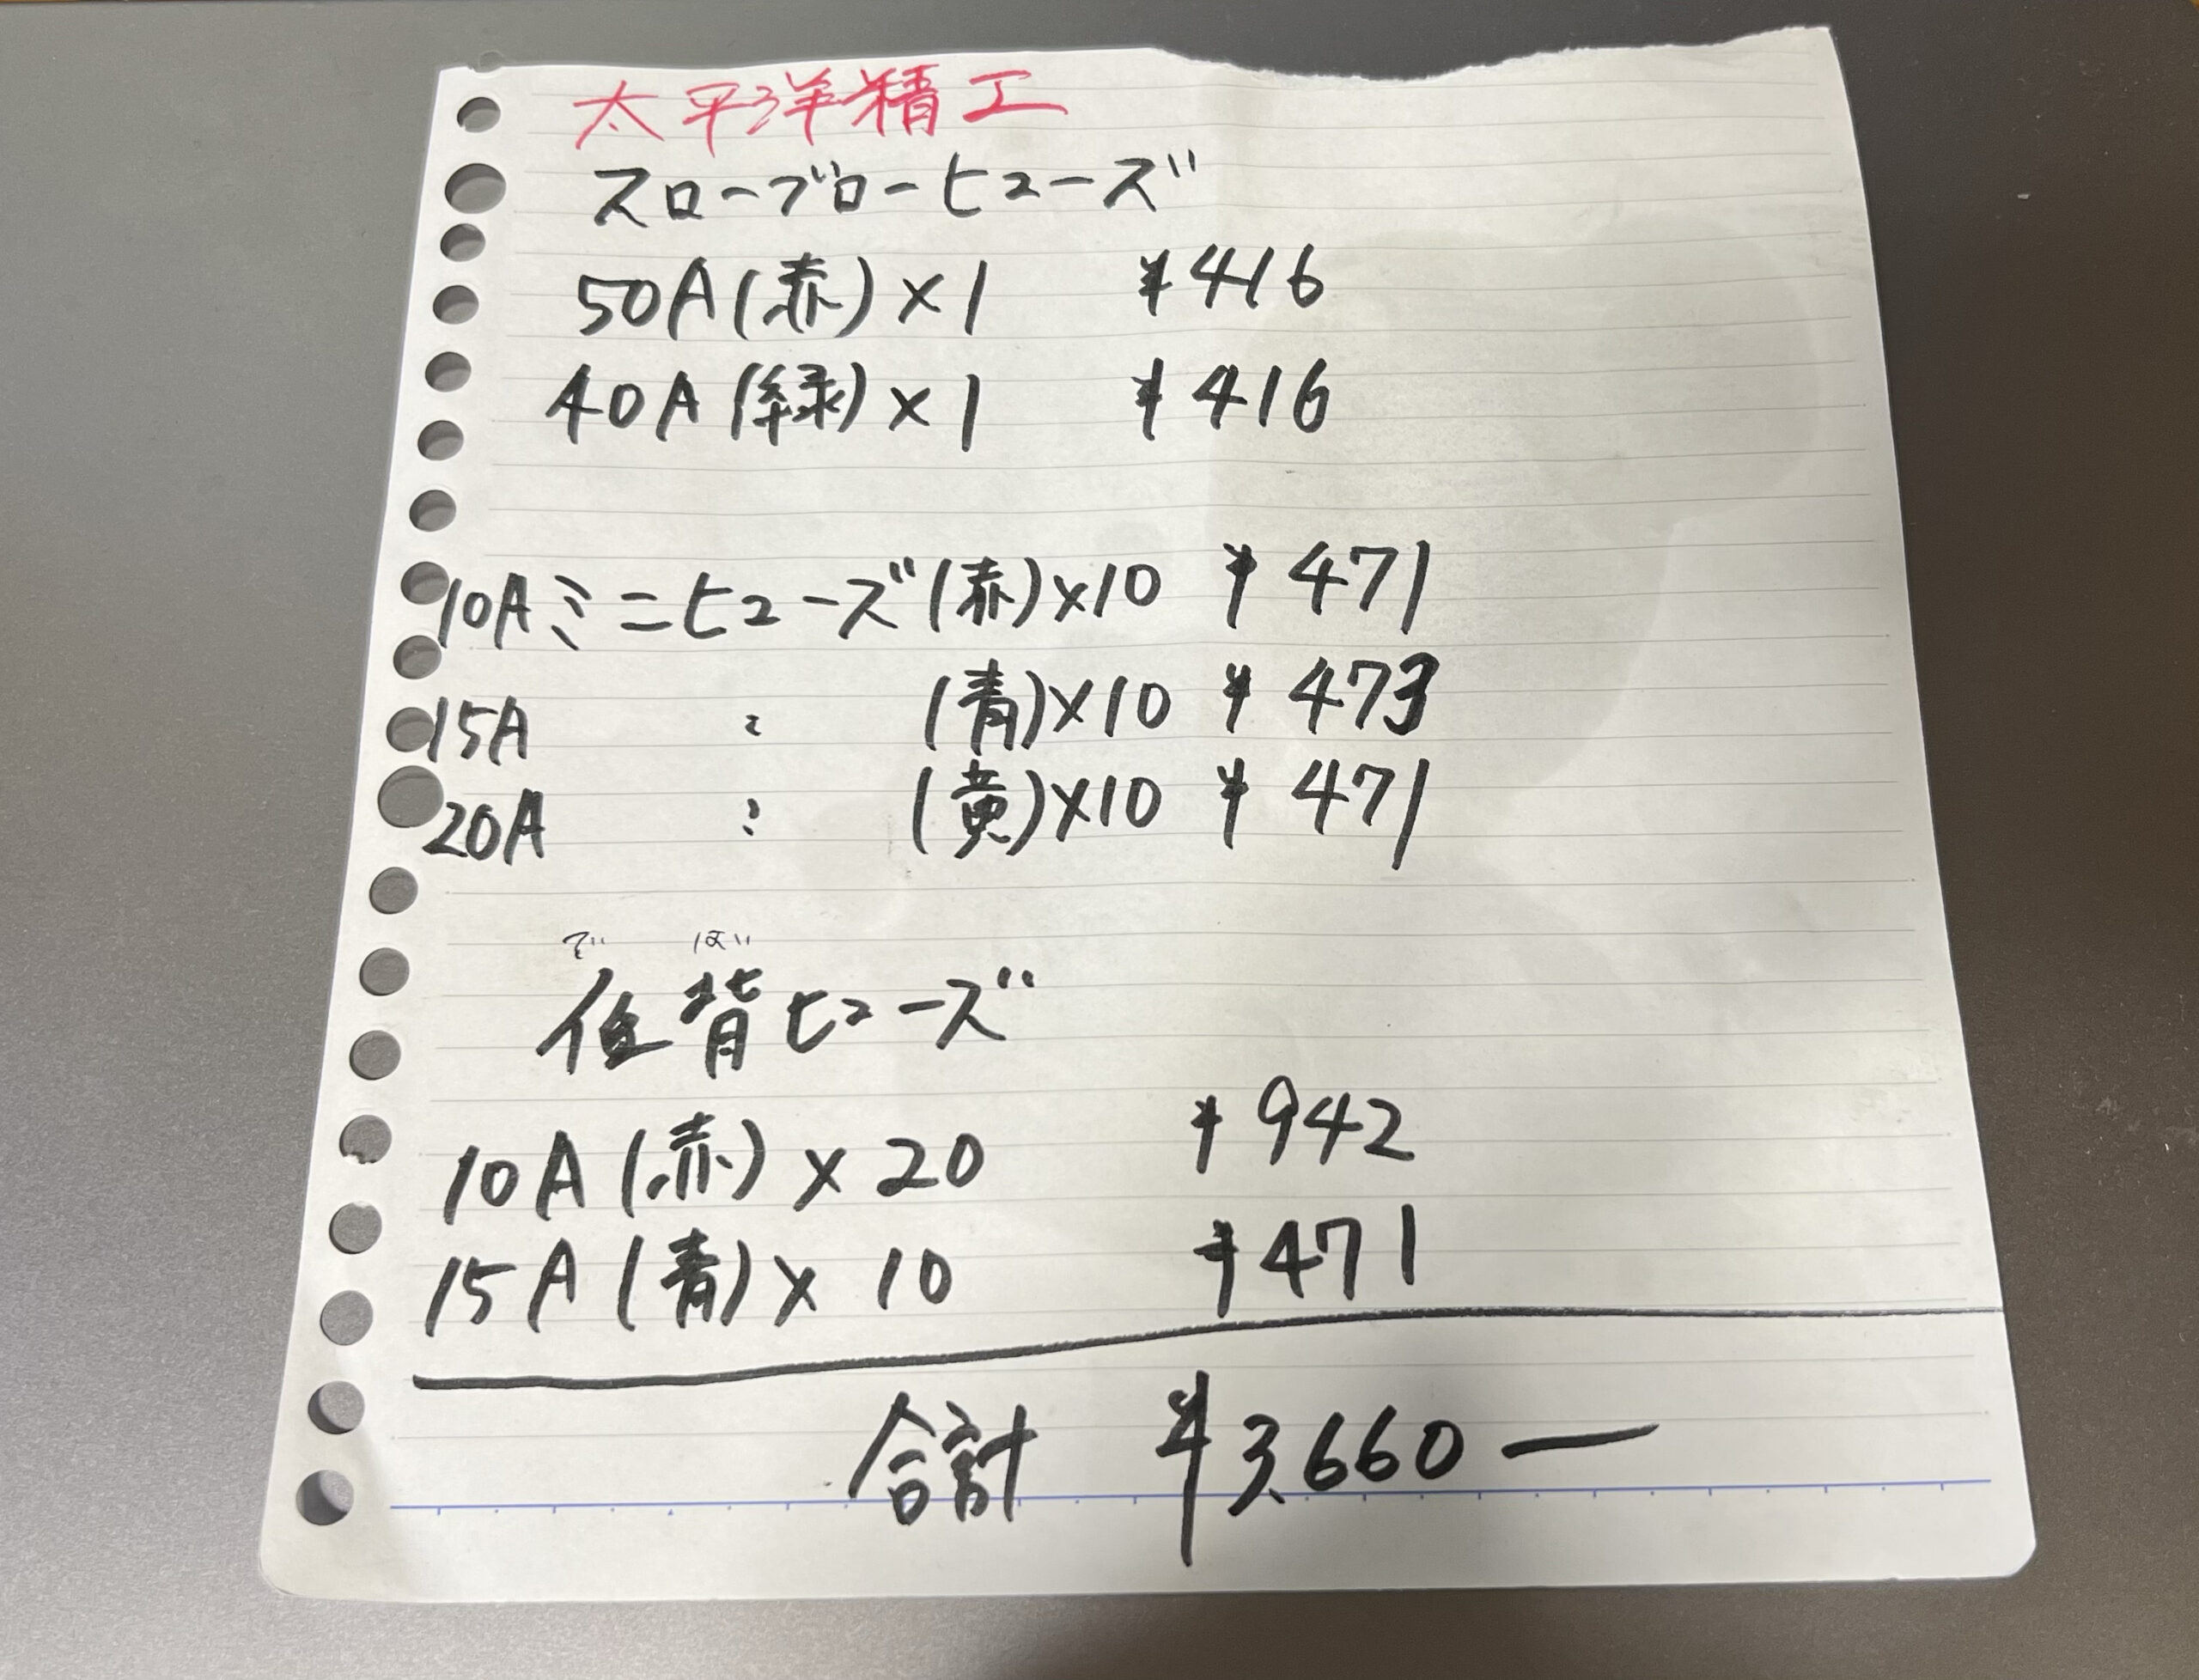 太平洋精工
スローブローヒューズ
50A(赤)×1 ¥416
40A(緑)×1 ¥416
10Aミニヒューズ(赤)×10 ¥471
15A 〃 (青)×10 ¥473
20A 〃 (黄)×10 ¥471
てい ばい
低背ヒューズ
10A(赤)×20 ¥942
15A(青)×10 ¥471
合計 ¥3,660ー